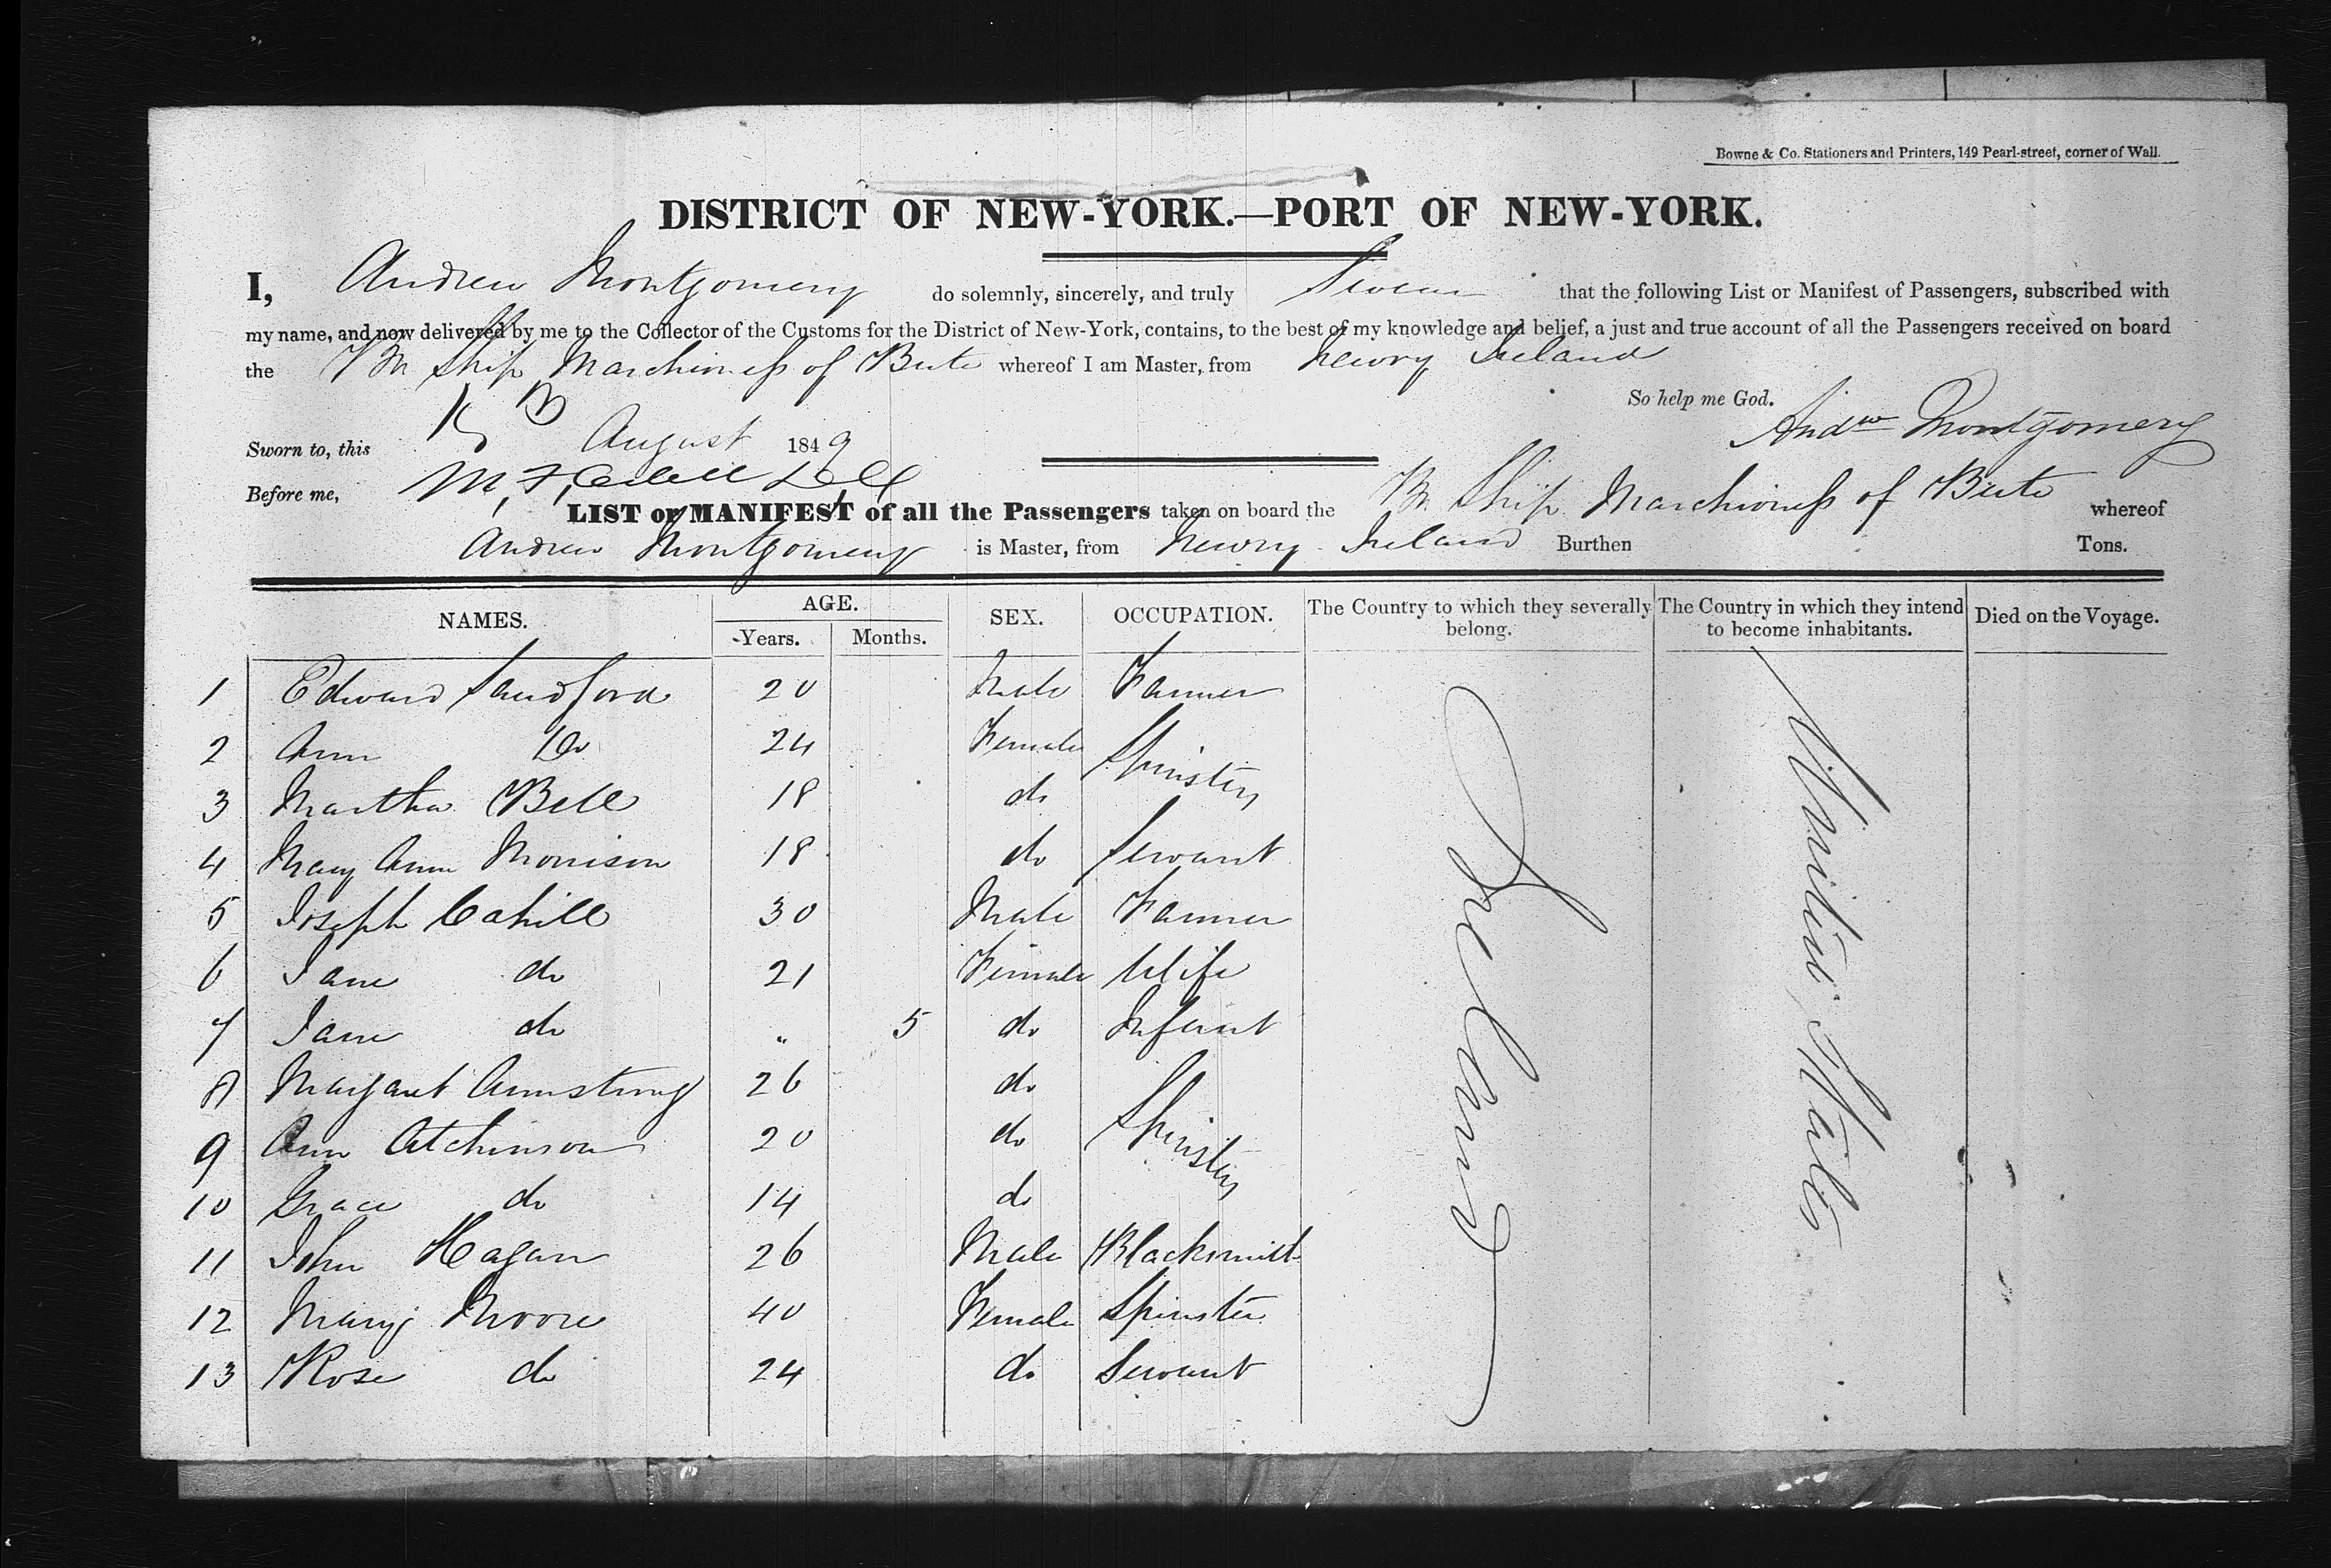 Bowne & Co. Stationers and Printers, 149 Pearl-street, corner of Wall.
DISTRICT OF NEW-YORK.—PORT OF NEW-YORK.
I, Andrew Montgomery do solemnly, sincerely, and truly Swear that the following List or Manifest of Passengers, subscribed with
my name, and now delivered by me to the Collector of the Customs for the District of New-York, contains, to the best of my knowledge and belief, a just and true account of all the Passengers received on board
the Br Ship Marchioness of Bute whereof I am Master, from Newry Ireland
So help me God.
Sworn to, this August 1849 Andw Montgomery
Before me,
LIST or MANIFEST of all the Passengers taken on board the Br Ship Marchioness of Bute whereof
Andrew Montgomery is Master, from Newry Ireland Burthen Tons.
NAMES. AGE. Years. Months. SEX. OCCUPATION. The Country to which they severally belong. The Country in which they intend to become inhabitants. Died on the Voyage.
1 Edward Sandford 20 Male Farmer
2 Ann Do 24 Female Spinsters
3 Martha Bell 18 do
4 Mary Ann Morrison 18 do Servant
5 Joseph Cahill 30 Male Farmer
6 Jane do 21 Female Wife
7 Jane do " 5 do Infant
8 Margaret Armstrong 26 do
9 Ann Atchinson 20 do Spinsters
10 Grace do 14 do
11 John Hagan 26 Male Blacksmith
12 Mary Moore 40 Female Spinster
13 Rose do 24 do Servant
Ireland
United States